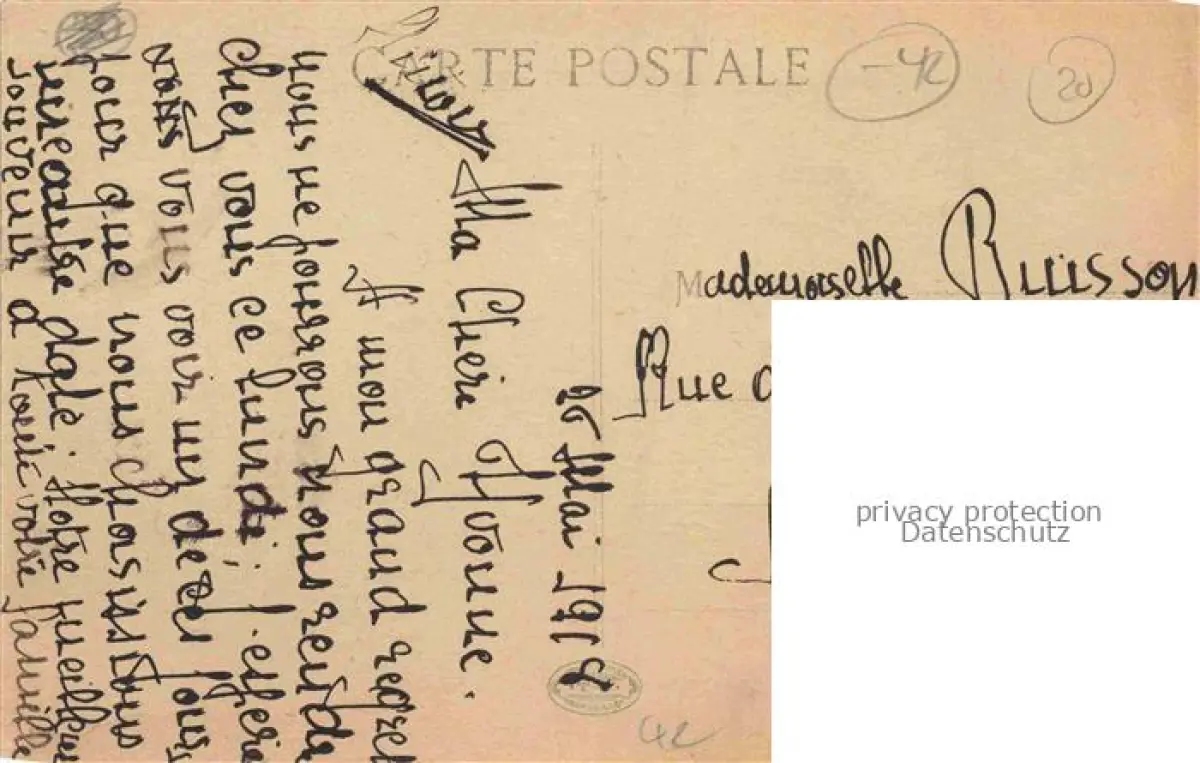 CARTE POSTALE
-42
20
Mademoiselle Buisson
Rue
26 Mai 191
Ma Chère Yvonne.
A mon grand regret
nous ne pourrons nous rendre
chez vous ce lundi, j'espère
vous voir un de ces jours
pour que nous choisissions
une autre date. Notre meilleur
souvenir à toute votre famille
42
privacy protection
Datenschutz